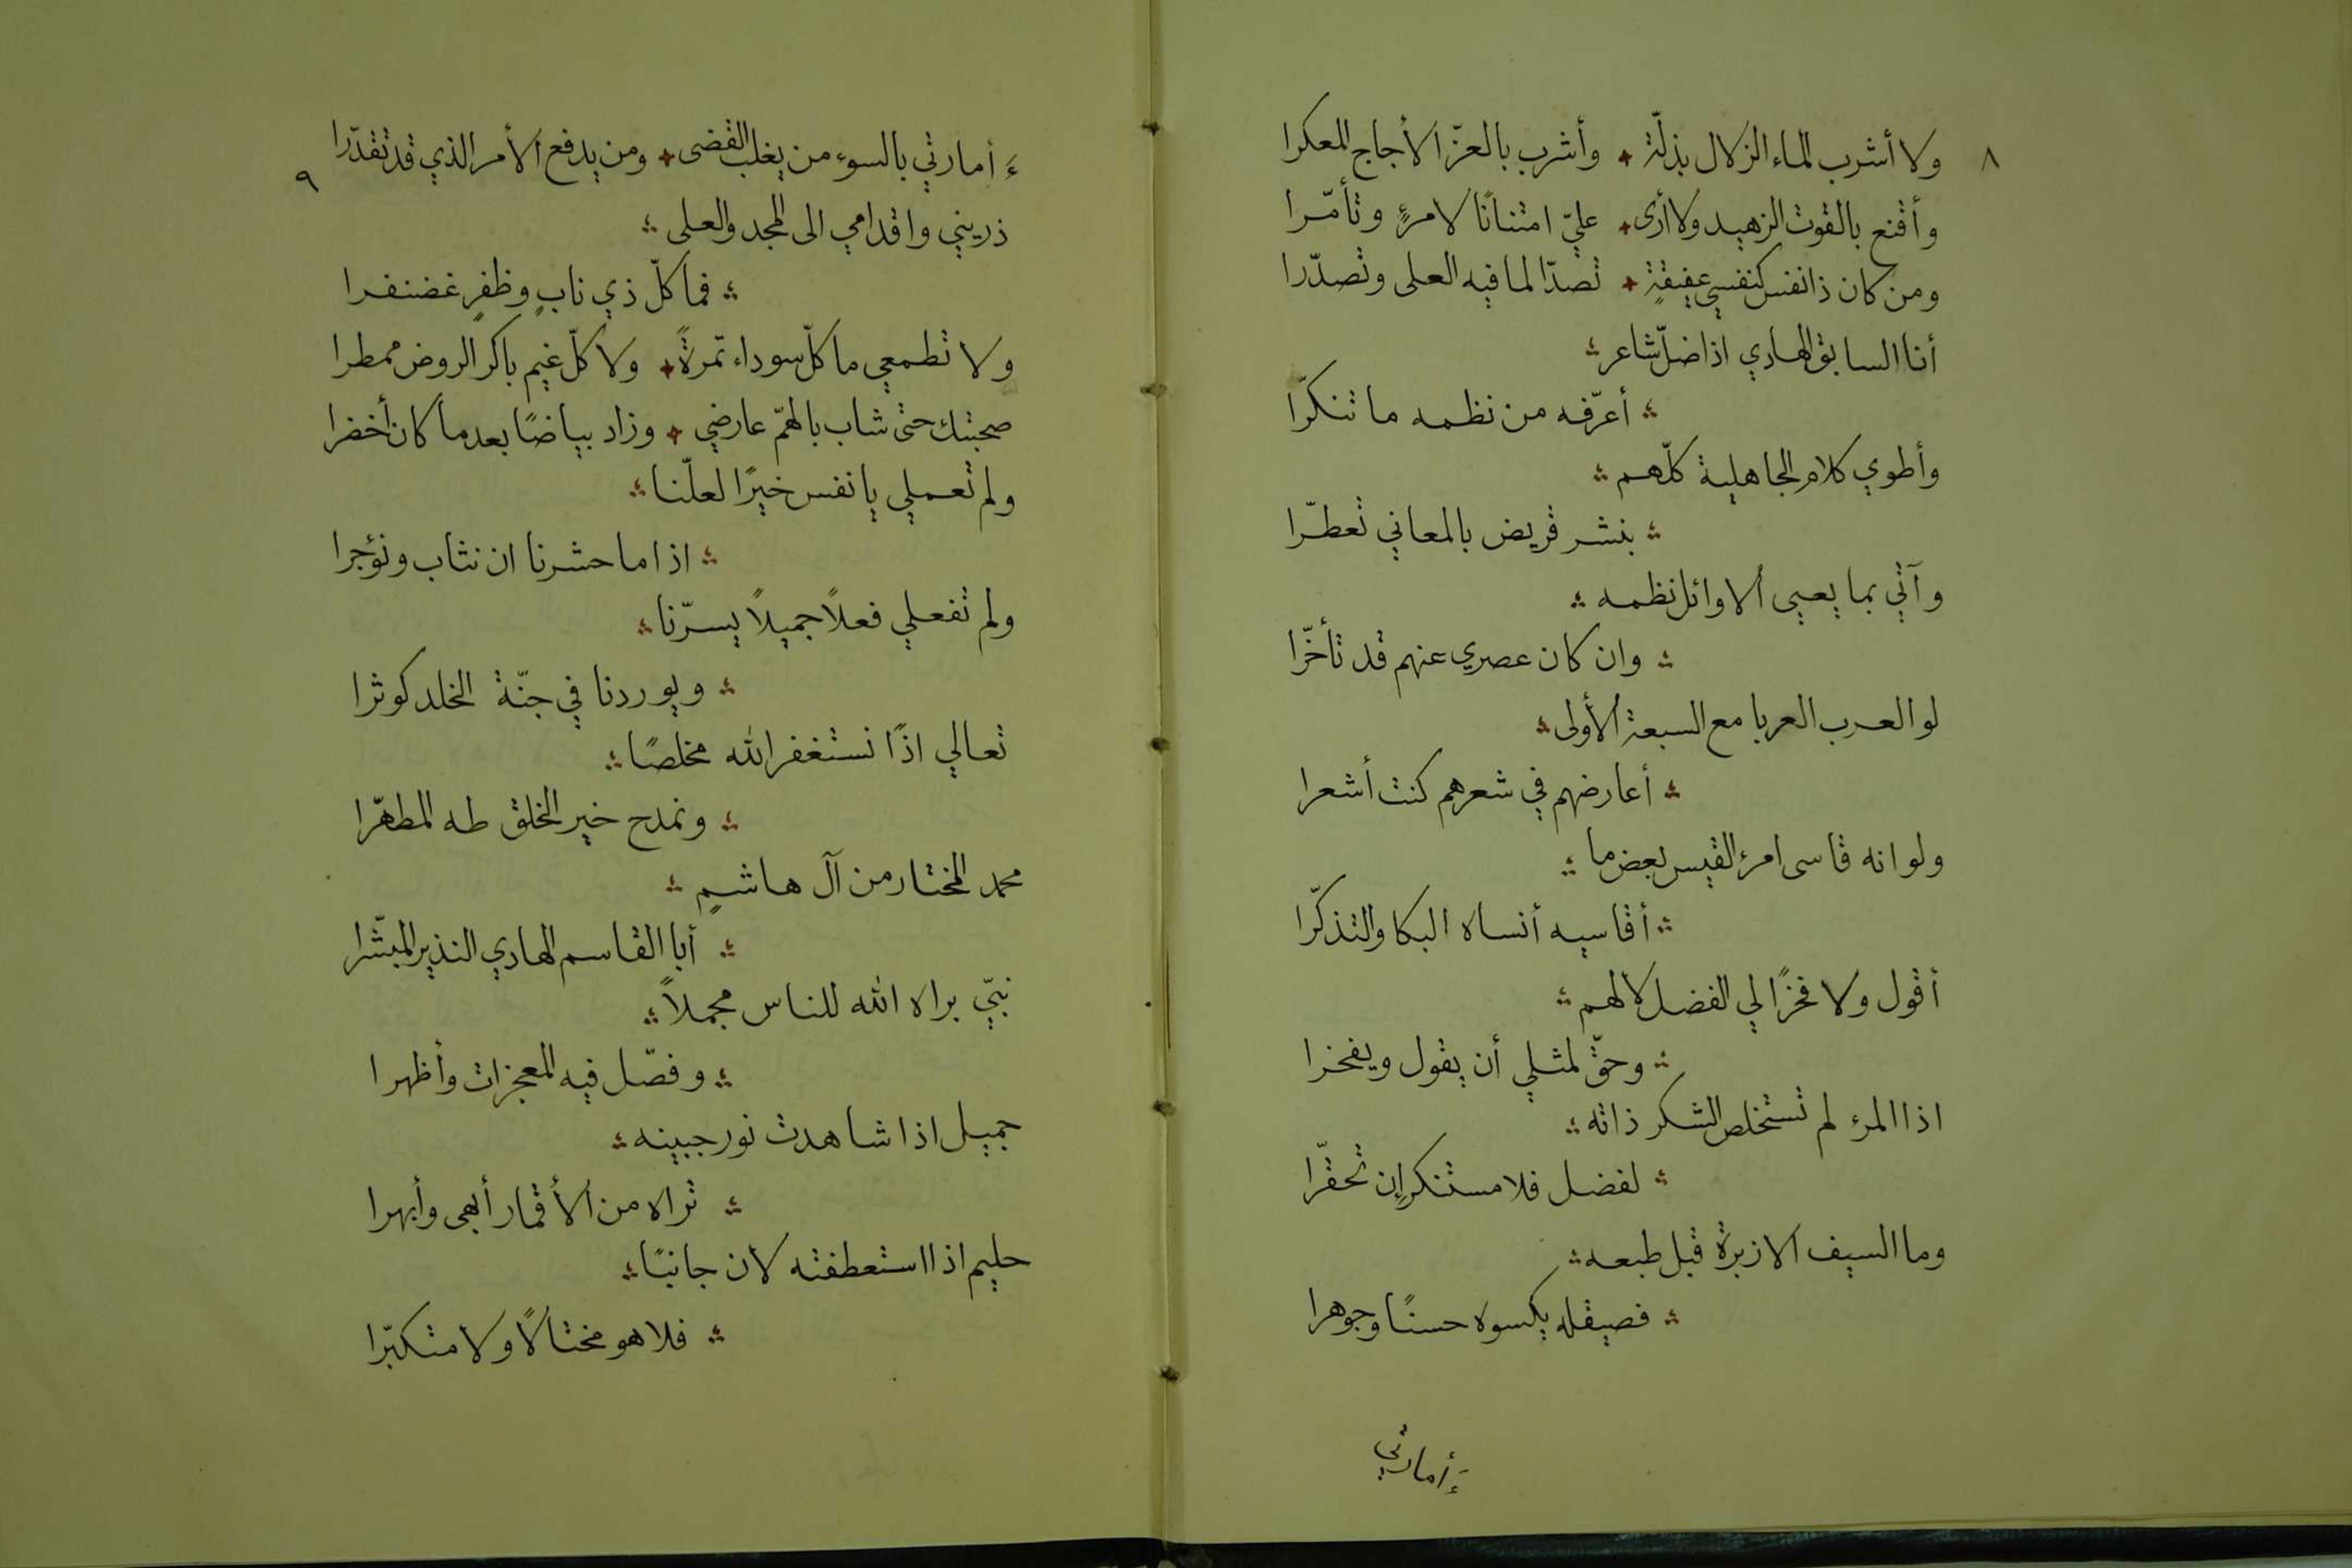 ٨
ولا أشرب الماء الزلال بذلّة ✦ وأشرب بالعزّ الأجاج المعكرا
وأقنع بالقوت الزهيد ولا أرى ✦ عليّ امتنانًا لامرئٍ وتأمّرا
ومن كان ذا نفس كنفسي عفيفةٍ ✦ تصدّا لما فيه العلى وتصدّرا
أنا السابق الهادي اذا ضلّ شاعر
أعرّفه من نظمه ما تنكرّا
وأطوي كلام الجاهلية كلّهم
بنشر قريض بالمعاني تعطّرا
وآتي بما يعيي الاوائل نظمه
وان كان عصري عنهم قد تأخّرا
لو العرب العربا مع السبعة الأولى
أعارضهم في شعرهم كنت أشعرا
ولو انه قاسى امرء القيس بعض ما
أقاسيه أنساه البكا والتذكّرا
أقول ولا فخرًا لي الفضل لا لهم
وحقّ لمثلي أن يقول ويفخرا
اذا المرء لم تستخلص الشكر ذاته
لفضل فلا مستنكرٍ إن تحقّرا
وما السيف الا زبرة قبل طبعه
فصيقله يكسوه حسنًا وجوهرا
ءَأمارتي
٩
ءَأمارتي بالسوء من يغلب القضى ✦ ومن يدفع الأمر الذي قد تقدّرا
ذريني واقدامي الى المجد والعلى
فما كلّ ذي نابٍ وظفرٍ غضنفرا
ولا تطمعي ما كلّ سوداء تمرةً ✦ ولا كلّ غيم باكر الروض ممطرا
صحبتك حتى شاب بالهمّ عارضي ✦ وزاد بياضًا بعد ما كان أخضرا
ولم تعملي يا نفس خيرًا لعلّنا
اذا ما حشرنا ان نثاب ونؤجرا
ولم تفعلي فعلاً جميلاً يسرّنا
ويوردنا في جنّة الخلد كوثرا
تعالي اذًا نستغفر الله مخلصًا
ونمدح خير الخلق طه المطهّرا
محمد المختار من آل هاشمٍ
أبا القاسم الهادي النذير المبشّرا
نبيّ براه الله للناس مجملاً
وفصّل فيه المعجزات وأظهرا
جميل اذا شاهدت نور جبينه
تراه من الأقمار أبهى وأبهرا
حليم اذا استعطفته لان جانبًا
فلا هو مختالاً ولا متكبّرا